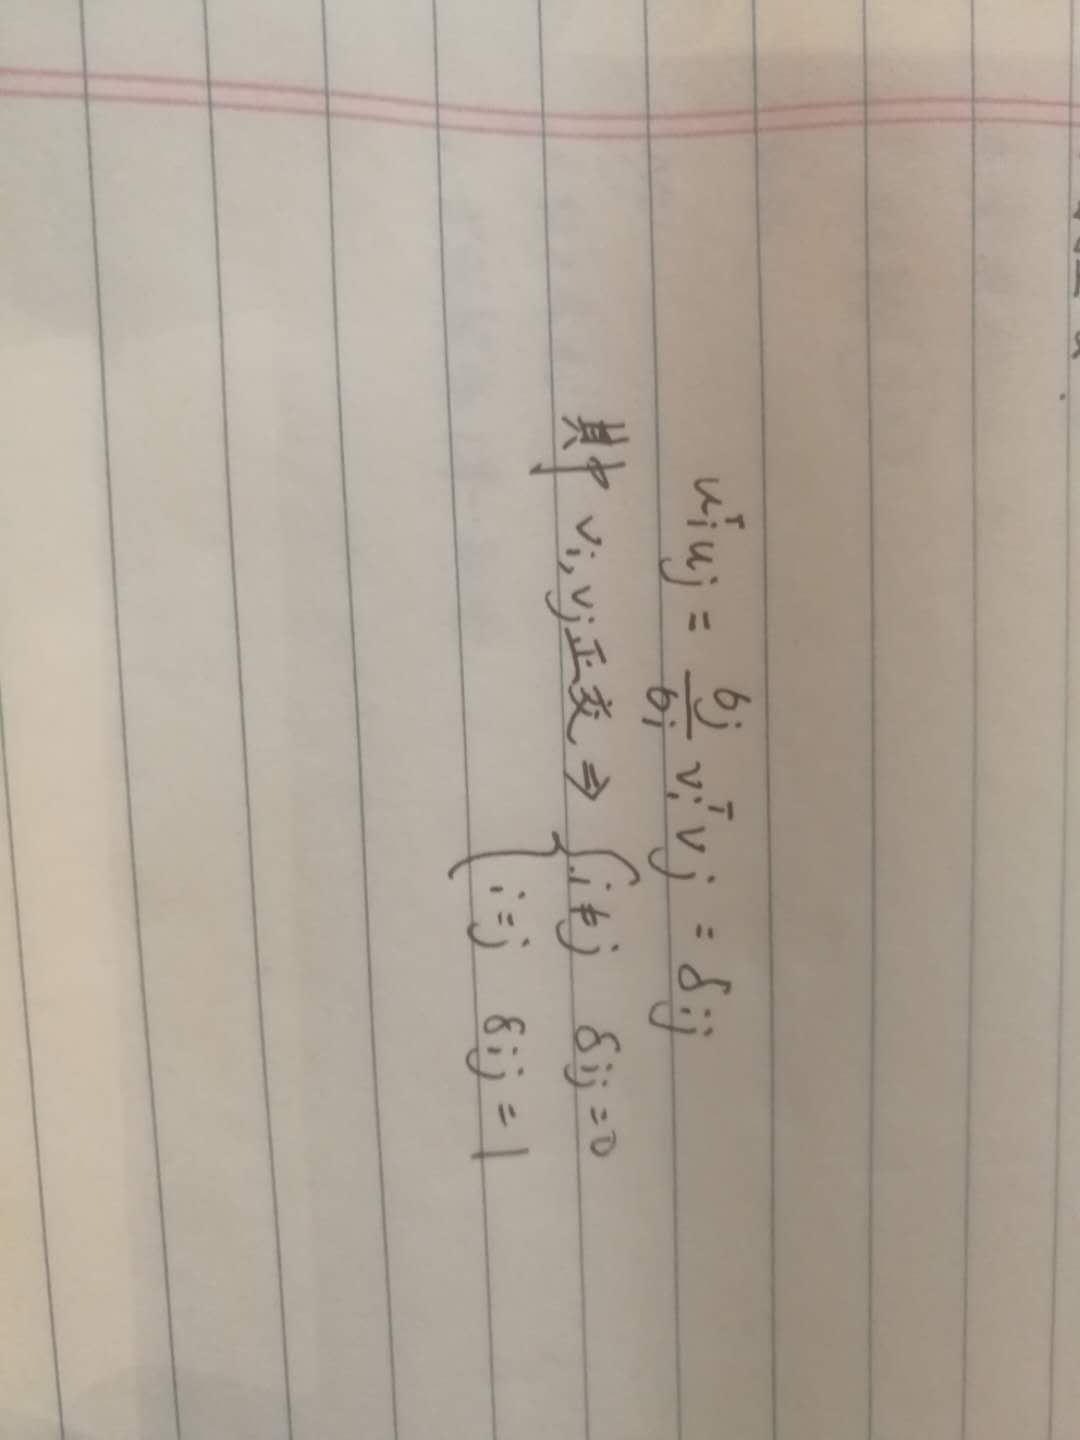 uᵢᵀuⱼ = bⱼ/bᵢ vᵢᵀvⱼ = δᵢⱼ
其中 vᵢ, vⱼ正交 ⇒ { i≠j δᵢⱼ=0
i=j δᵢⱼ=1